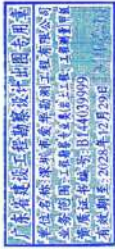 广东省建设工程勘察设计出图专用章
单位名称:深圳市爱华勘测工程有限公司
业务范围:工程勘察专业类(岩土工程、工程测量)甲级
资质证书编号:B144039999
有效期至:2028年12月29日